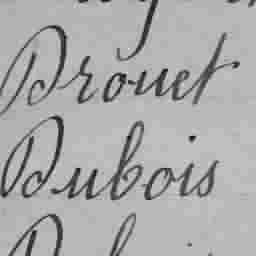 Drouet
Dubois